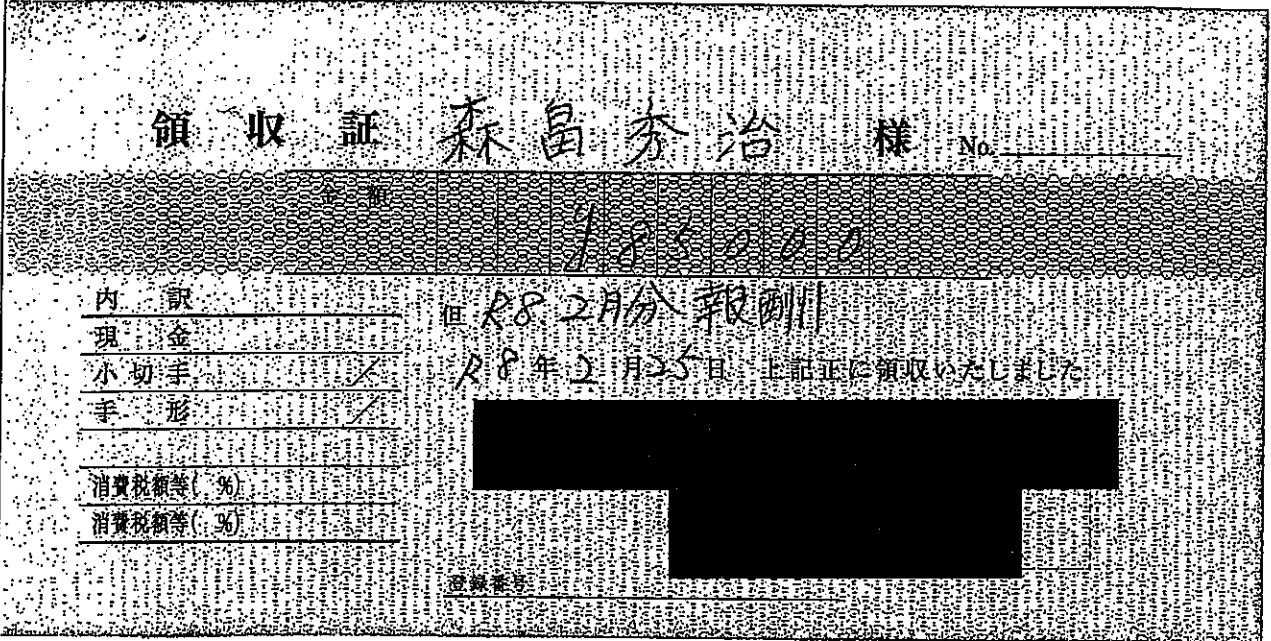 領収証 森畠秀治 様 No.
金額 ¥85000
内訳
現金
小切手 /
手形 /
消費税額等( %)
消費税額等( %)
但 R8 2月分 報酬
R8年2月25日 上記正に領収いたしました
登録番号